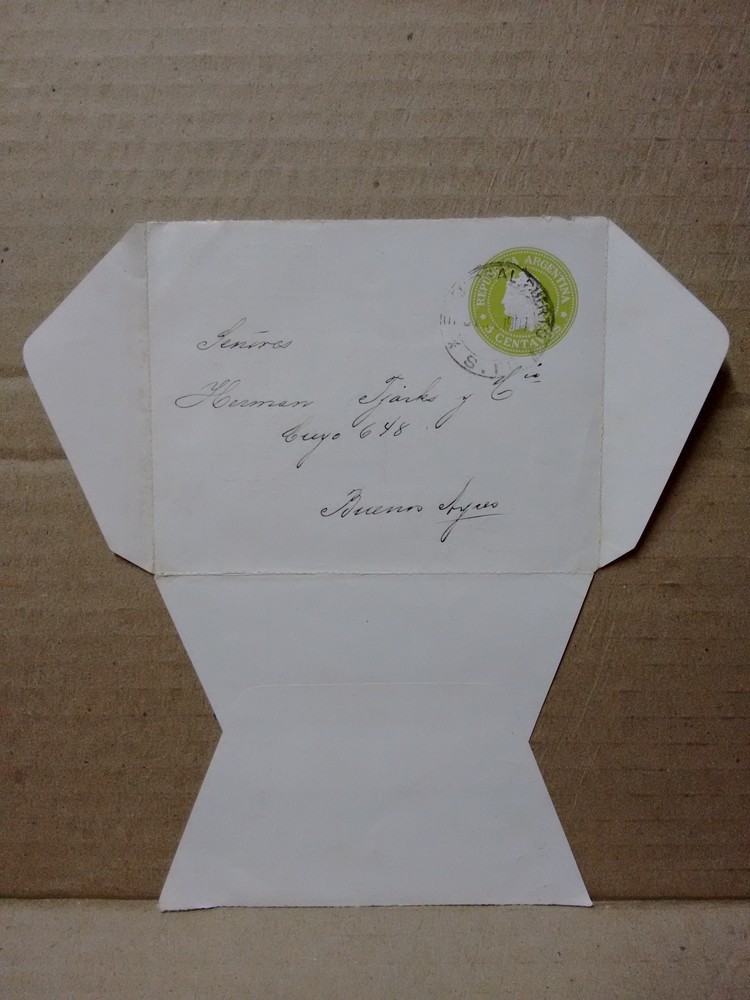 REPUBLICA ARGENTINA
3 CENTAVOS
Señores
Herman Tjarks y Cia
Cuyo 648.
Buenos Ayres